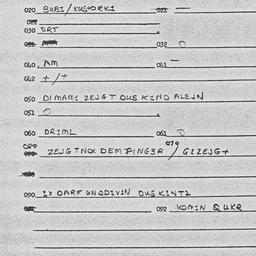 020 BUBI/KUSTORKI 021 —
030 ORT
032 O
040 AM 041 —
042 +/+
050 DIMAMI ZEJGT DUS KIND ALEJN
051 O
060 DRIML 061 O
ZEJGTNOX DEM FINGER / GIZEJGT
090 IX DARF UNSDIVIN DUS KINTZ
092 KOMIN QUKR